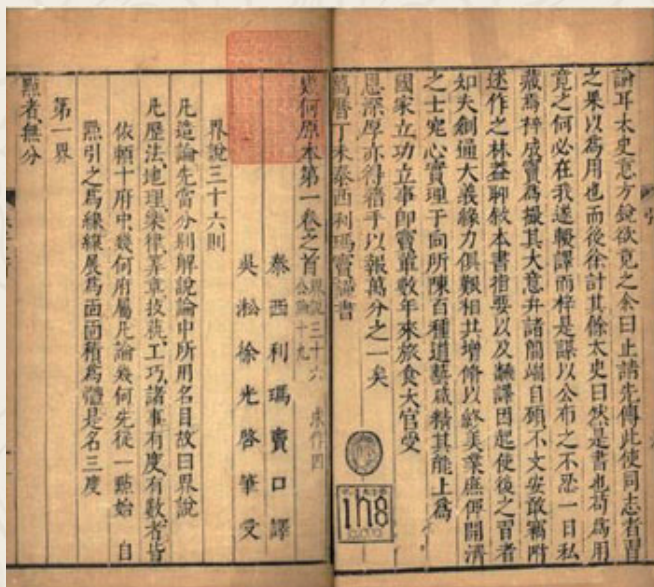 論耳太史意方銳欲竟之余曰止請先傳此使同志者習
之果以為用也而後徐計其餘太史曰然是書也苟為用
竟之何必在我遂輟譯而梓是謀以公布之不忍一日私
藏焉梓成竇為撮其大意弁諸簡端自顧不文安敢竊附
述作之林蓋聊敘本書指要以及翻譯因起使後之習者
知夫創通大義緣力俱艱相共增修以終美業庶俾開濟
之士究心實理于向所陳百種道藝咸精其能上為
國家立功立事即竇輩數年來旅食大官受
恩深厚亦得藉手以報萬分之一矣
萬曆丁未泰西利瑪竇謹書
幾何原本第一卷之首 界說三十六 公論十九 求作四
泰西利瑪竇口譯
吳淞徐光啓筆受
界說三十六則
凡造論先當分別解說論中所用名目故曰界說
凡歷法地理樂律筭章技藝工巧諸事有度有數者皆
依賴十府中幾何府屬凡論幾何先從一點始 自
點引之為線線展為面面積為體是名三度
第一界
點者無分
108